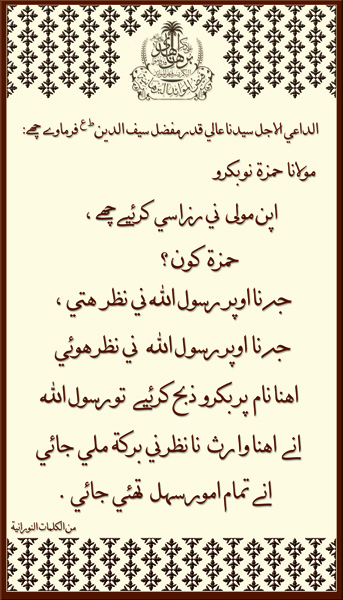 الداعي الاجل سيدنا عالي قدر مفضل سيف الدين ط ع فرماوے چھے:
مولانا حمزة نو بكرو
اپن مولى ني رزا سي كرئيے چھے ،
حمزة كون؟
جہ نا اوپر رسول الله ني نظر هتي ،
جہ نا اوپر رسول الله ني نظر هوئي
اهنا نام پر بكرو ذبح كرئيے تو رسول الله
انے اهنا وارث نا نظر ني بركة ملي جائي
انے تمام امور سهل تھئي جائي .
من الكلمات النورانية